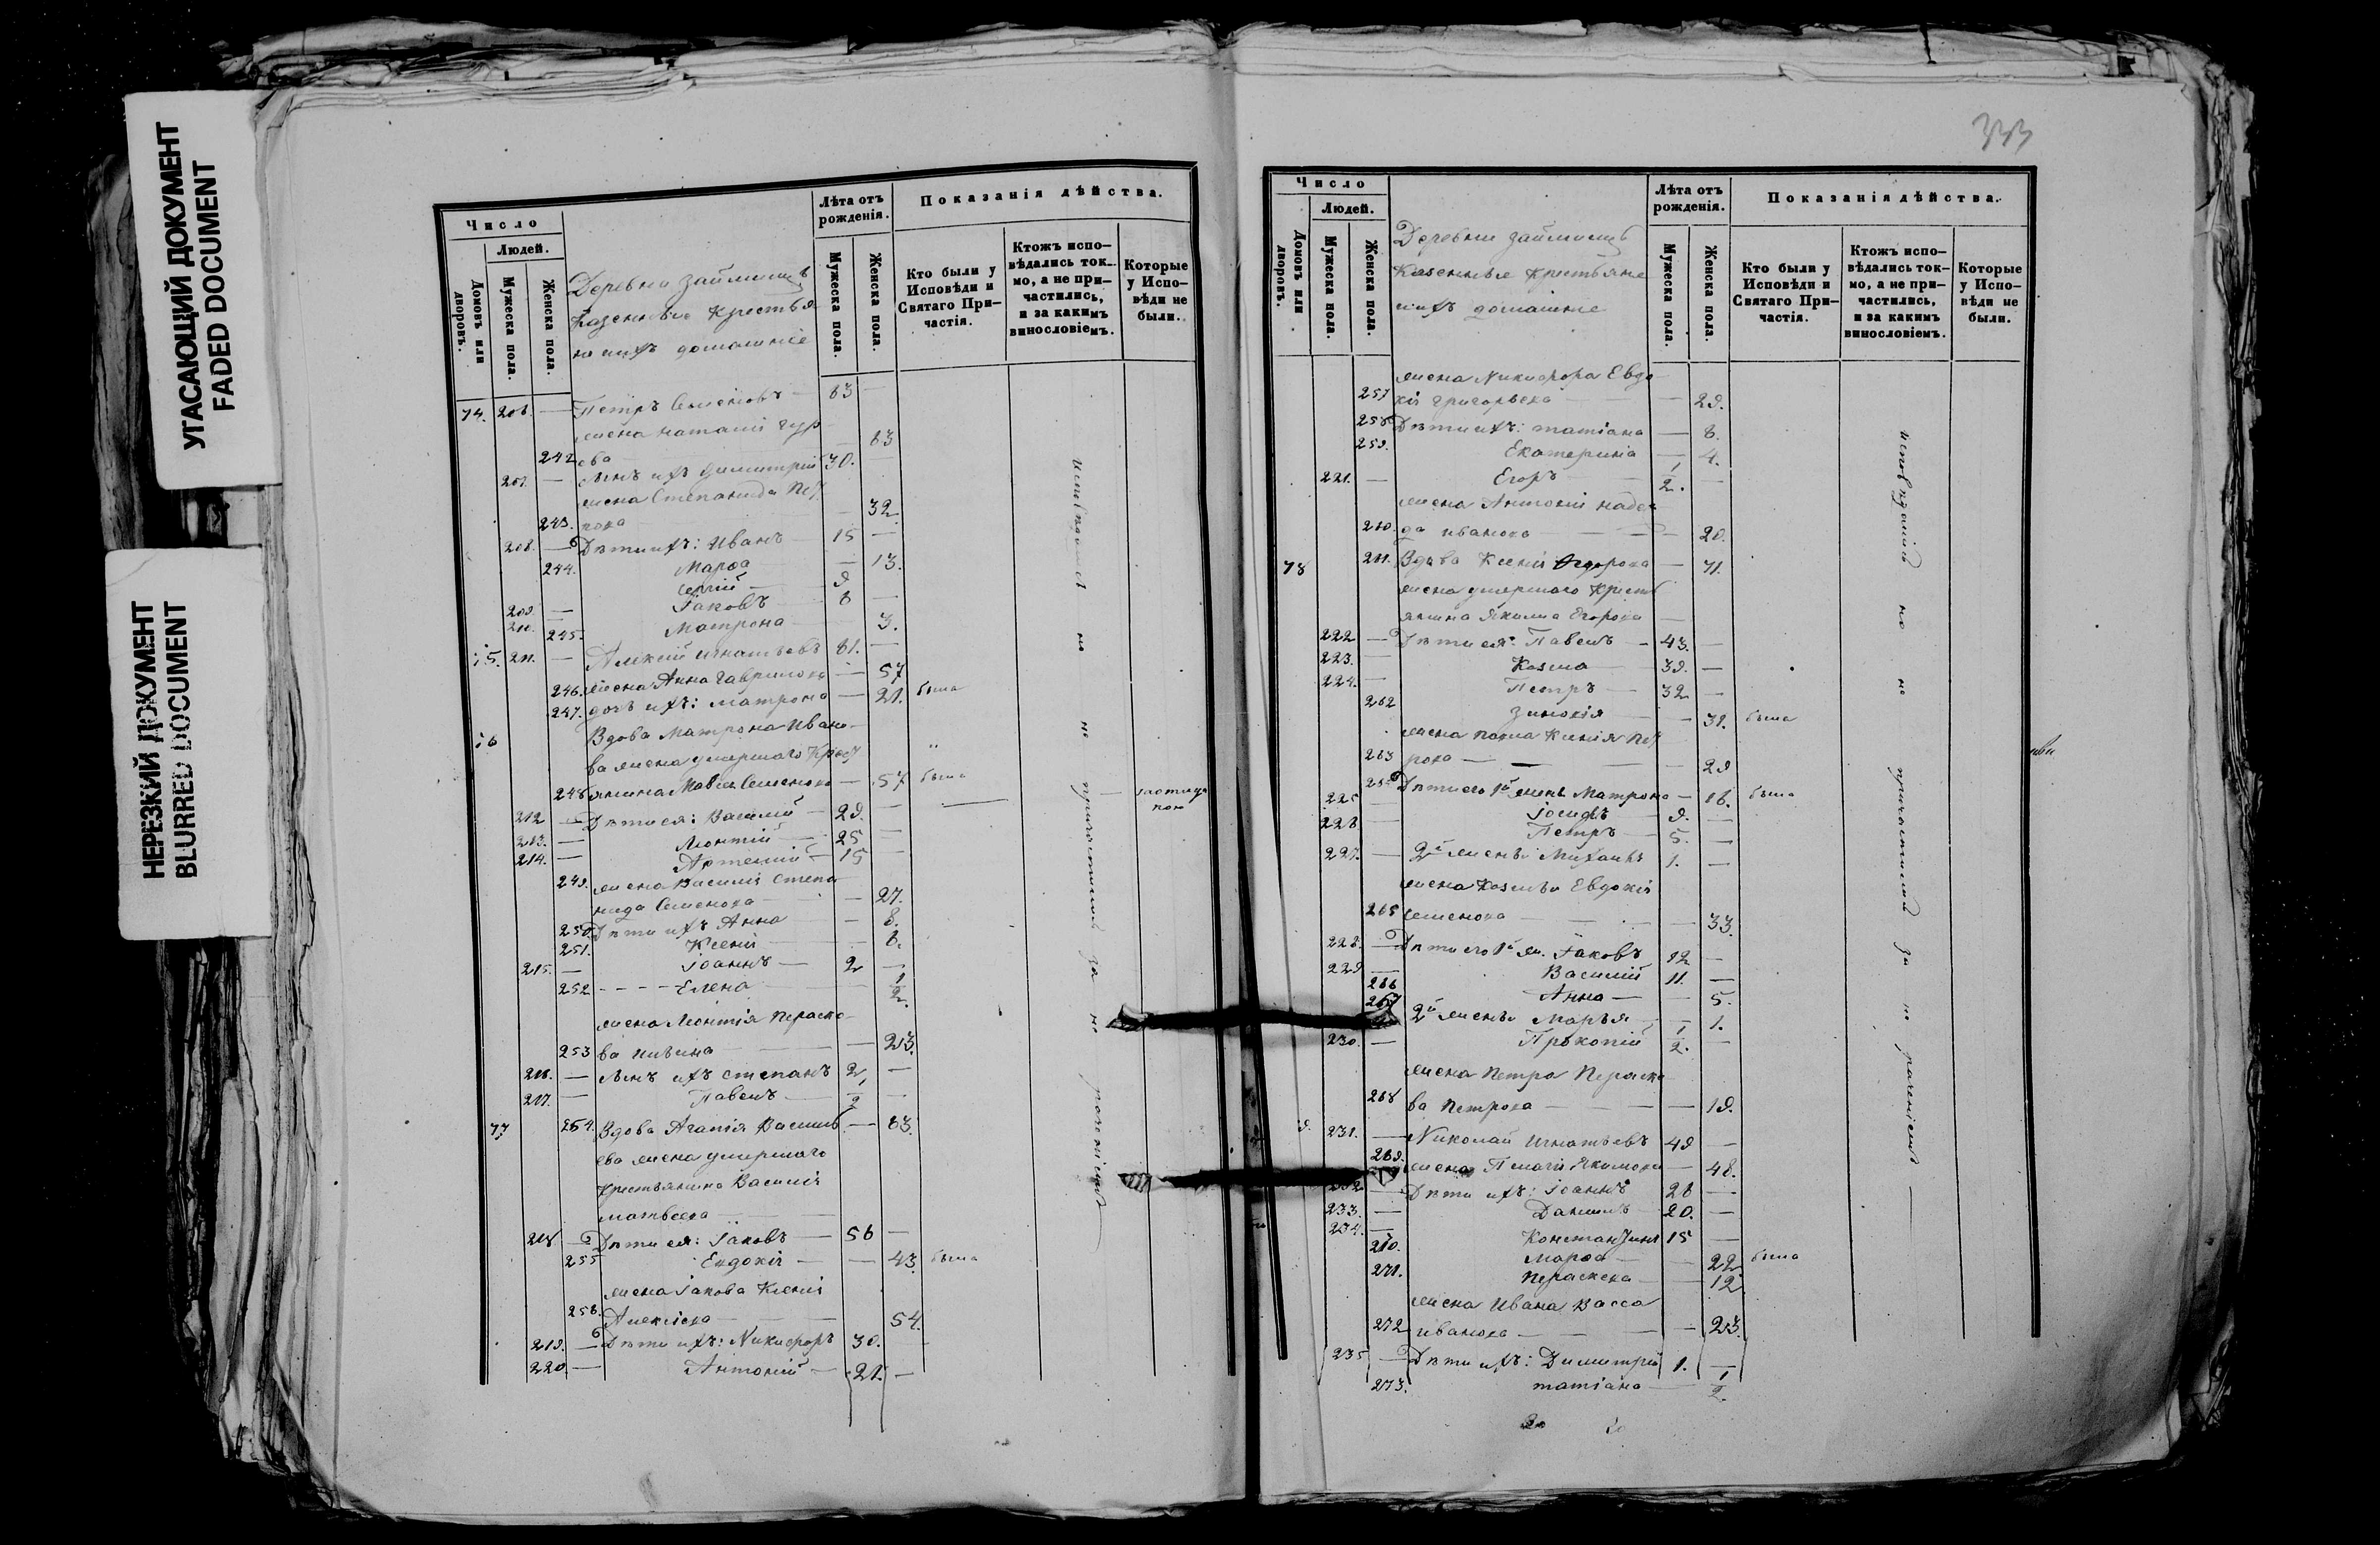 УГАСАЮЩИЙ ДОКУМЕНТ
FADED DOCUMENT
НЕРЕЗКИЙ ДОКУМЕНТ
BLURRED DOCUMENT
Число
Людей.
Домовъ или дворовъ.
Мужеска пола.
Женска пола.
Деревни Займищъ
Казенные Крестья
не ихъ домашніе
Лѣта отъ рожденія.
Мужеска пола.
Женска пола.
Показанія дѣйства.
Кто были у Исповѣди и Святаго Причастія.
Ктожъ исповѣдались токмо, а не причастились, и за какимъ винословіемъ.
Которые у Исповѣди не были.
74. 206. — Петръ Семеновъ — 63 —
жена Наталія Гур
242 ева — 63
207. — сынъ ихъ Димитрій 30. —
жена Степанида Пет
243. рова — 32
208. — Дѣти ихъ: Иванъ — 15 —
244. Марѳа — 13.
209. — Сергій — 9
210. — Іаковъ — 6 —
245. Матрона — 3.
75. 211. — Алексій Игнатьевъ 61. —
246. жена Анна Гаврилова — 57
247. дочь ихъ: Матрона — 21. была
76 Вдова Матрона Ивано
ва жена умершаго Крест
248 янина Семенова — 57 была
212 — Дѣти ея: Василій — 29. —
213. — Леонтій — 25 —
214. — Артемій — 15 —
249. жена Василія Степа
нида Семенова — 27.
250. Дѣти ихъ Анна — 8.
251. Ксенія — 6.
215. — Іоаннъ — 2 —
252 Елена — 1/2.
жена Леонтія Параске
253 ва — 23.
216. — сынъ ихъ Степанъ 2 —
217. — Павелъ — 1/2 —
77 254. Вдова Агапія Василь — 63.
ева жена умершаго
Крестьянина Василія
Матвеева —
218 — Дѣти ея: Іаковъ — 56 —
255 Евдокія — 43 была
жена Іакова Ксенія
256. Алексіева — 54.
219. — Дѣти ихъ: Никифоръ 30. —
220. — Антоній — 21. —
исповѣдался но не причастился за не раченіемъ
333
Число
Людей.
Домовъ или дворовъ.
Мужеска пола.
Женска пола.
Деревни Займищъ
Казенные Крестьяне
ихъ домашніе
Лѣта отъ рожденія.
Мужеска пола.
Женска пола.
Показанія дѣйства.
Кто были у Исповѣди и Святаго Причастія.
Ктожъ исповѣдались токмо, а не причастились, и за какимъ винословіемъ.
Которые у Исповѣди не были.
жена Никифора Евдо
257 кія Григорьева — 29.
258 Дѣти ихъ: Татіана — 6.
259. Екатерина — 4.
221. — Егоръ — 1/2. —
жена Антонія Надеж
260. да Иванова — 20.
78 261. Вдова Ксенія Ѳедорова — 71.
жена умершаго Кресть
янина Якима Егорова —
222 — Дѣти ея: Павелъ — 43. —
223. — Козма — 39. —
224. — Петръ — 32 —
262 Зиновія — 31. была
жена Павла Ксенія Пет
263 рова — 29
264 Дѣти его 1й жены Матрона — 16. была
225 — Іосифъ — 9. —
226. — Петръ — 5. —
227. — 2й жены Михаилъ 1. —
жена Козьмы Евдокія
265 Семенова — 33.
228. — Дѣти его 1й ж. Іаковъ 12 —
229 — Василій 11. —
266 Анна — 5.
267 2й жены Марья — 1.
230. — Прокопій 1/2. —
жена Петра Параске
268 ва Петрова — 19.
231. — Николай Игнатьевъ 49 —
269. жена Пелагія Якимова — 48.
232 — Дѣти ихъ: Іоаннъ 26 —
233. — Даніилъ 20. —
234. — Константинъ 15 —
270. Марѳа — 22 была
271. Параскева — 12
жена Ивана Васса
272 Иванова — 23.
235 — Дѣти ихъ: Димитрій 1. —
273. Татіана — 1/2.
исповѣдались но не причастились за не раченіемъ —